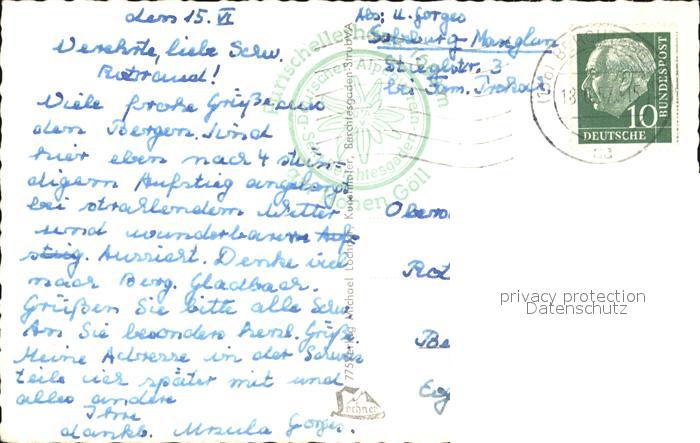 den 15. VI
Verehrte, liebe Schw.
Rotraud!
Viele frohe Grüße aus
den Bergen. Sind
hier eben nach 4 stün-
digem Aufstieg angelangt
bei strahlendem Wetter
und wunderbarer Aus
stieg. Aussicht. Denke viel
nach Berg. Gladbach.
Grüßen Sie bitte alle Schw.
An Sie besonders herzl. Grüße.
Meine Adresse in der Schweiz
teile ich später mit und
alles andere
Ihre
dankb. Ursula Gorges.
Abs: U. Gorges
Salzburg Maxglan
Stieglstr. 3
bei Fam.
Purtschellerhaus
Deutscher Alpenverein
Berchtesgaden
Hohen Göll
Michael Lochner
Berchtesgaden-Strub
Lochner
10
DEUTSCHE
BUNDESPOST
Obero
Rot
Be
privacy protection
Datenschutz